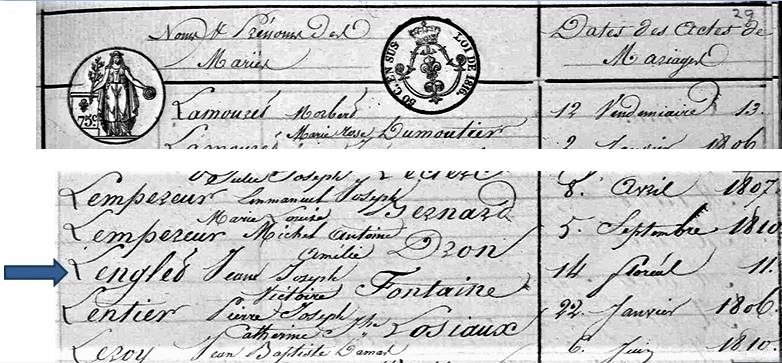 29
Noms & Prénoms des Mariés
Dates des Actes de Mariages
75c
50 C. EN SUS LOI DE 1816.
Lamourés Norbert
Marie Rose Dumoutier 12 Vendemiaire 13.
Lamourés
2. Janvier 1806.
Julie Joseph
Lempereur Emmanuel Joseph 8. Avril 1807.
Marie Louise Bernard
Lempereur Michel Antoine 5. Septembre 1810
Amélie Dron
Lenglés Jean Joseph 14 floréal 11.
Victoire Fontaine
Lentier Pierre Joseph 22. Janvier 1806.
Catherine Jph Losiaux
Leroy Jean Baptiste 6. Juin 1810.